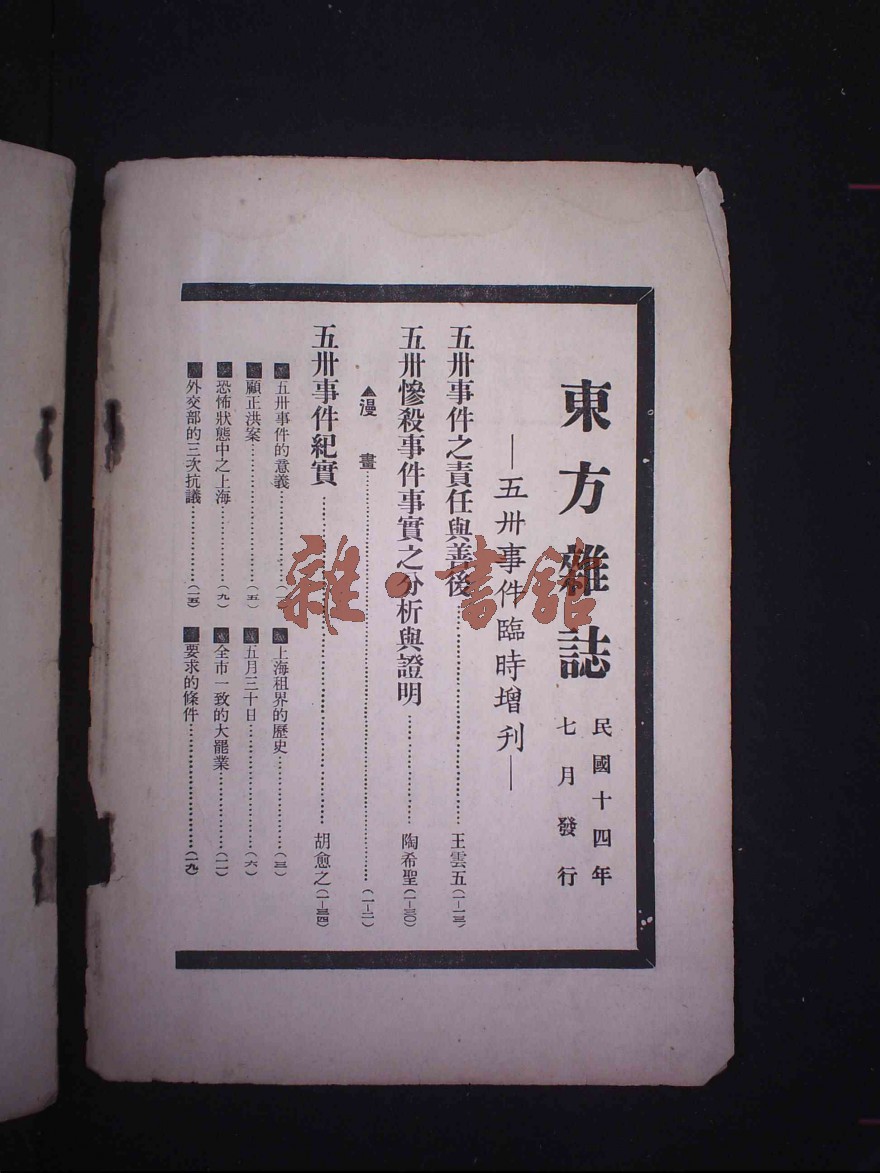 東方雜誌
民國十四年
七月發行
—五卅事件臨時增刊—
五卅事件之責任與善後……王雲五(一—一三)
五卅慘殺事件事實之分析與證明……陶希聖(一—三〇)
▲漫畫……(一—二)
五卅事件紀實……胡愈之(一—三四)
■五卅事件的意義…… ■上海租界的歷史……(三)
■顧正洪案……(五) ■五月三十日……(六)
■恐怖狀態中之上海……(九) ■全市一致的大罷業……(一一)
■外交部的三次抗議……(一五) ■要求的條件……(一九)
雜·書館